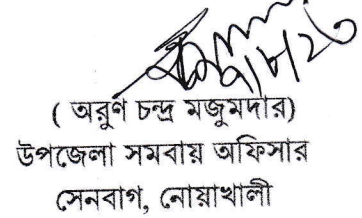 ( অরুণ চন্দ্র মজুমদার)
উপজেলা সমবায় অফিসার
সেনবাগ, নোয়াখালী